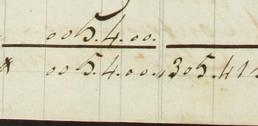 005.4.00.
005.4.00.
305.41